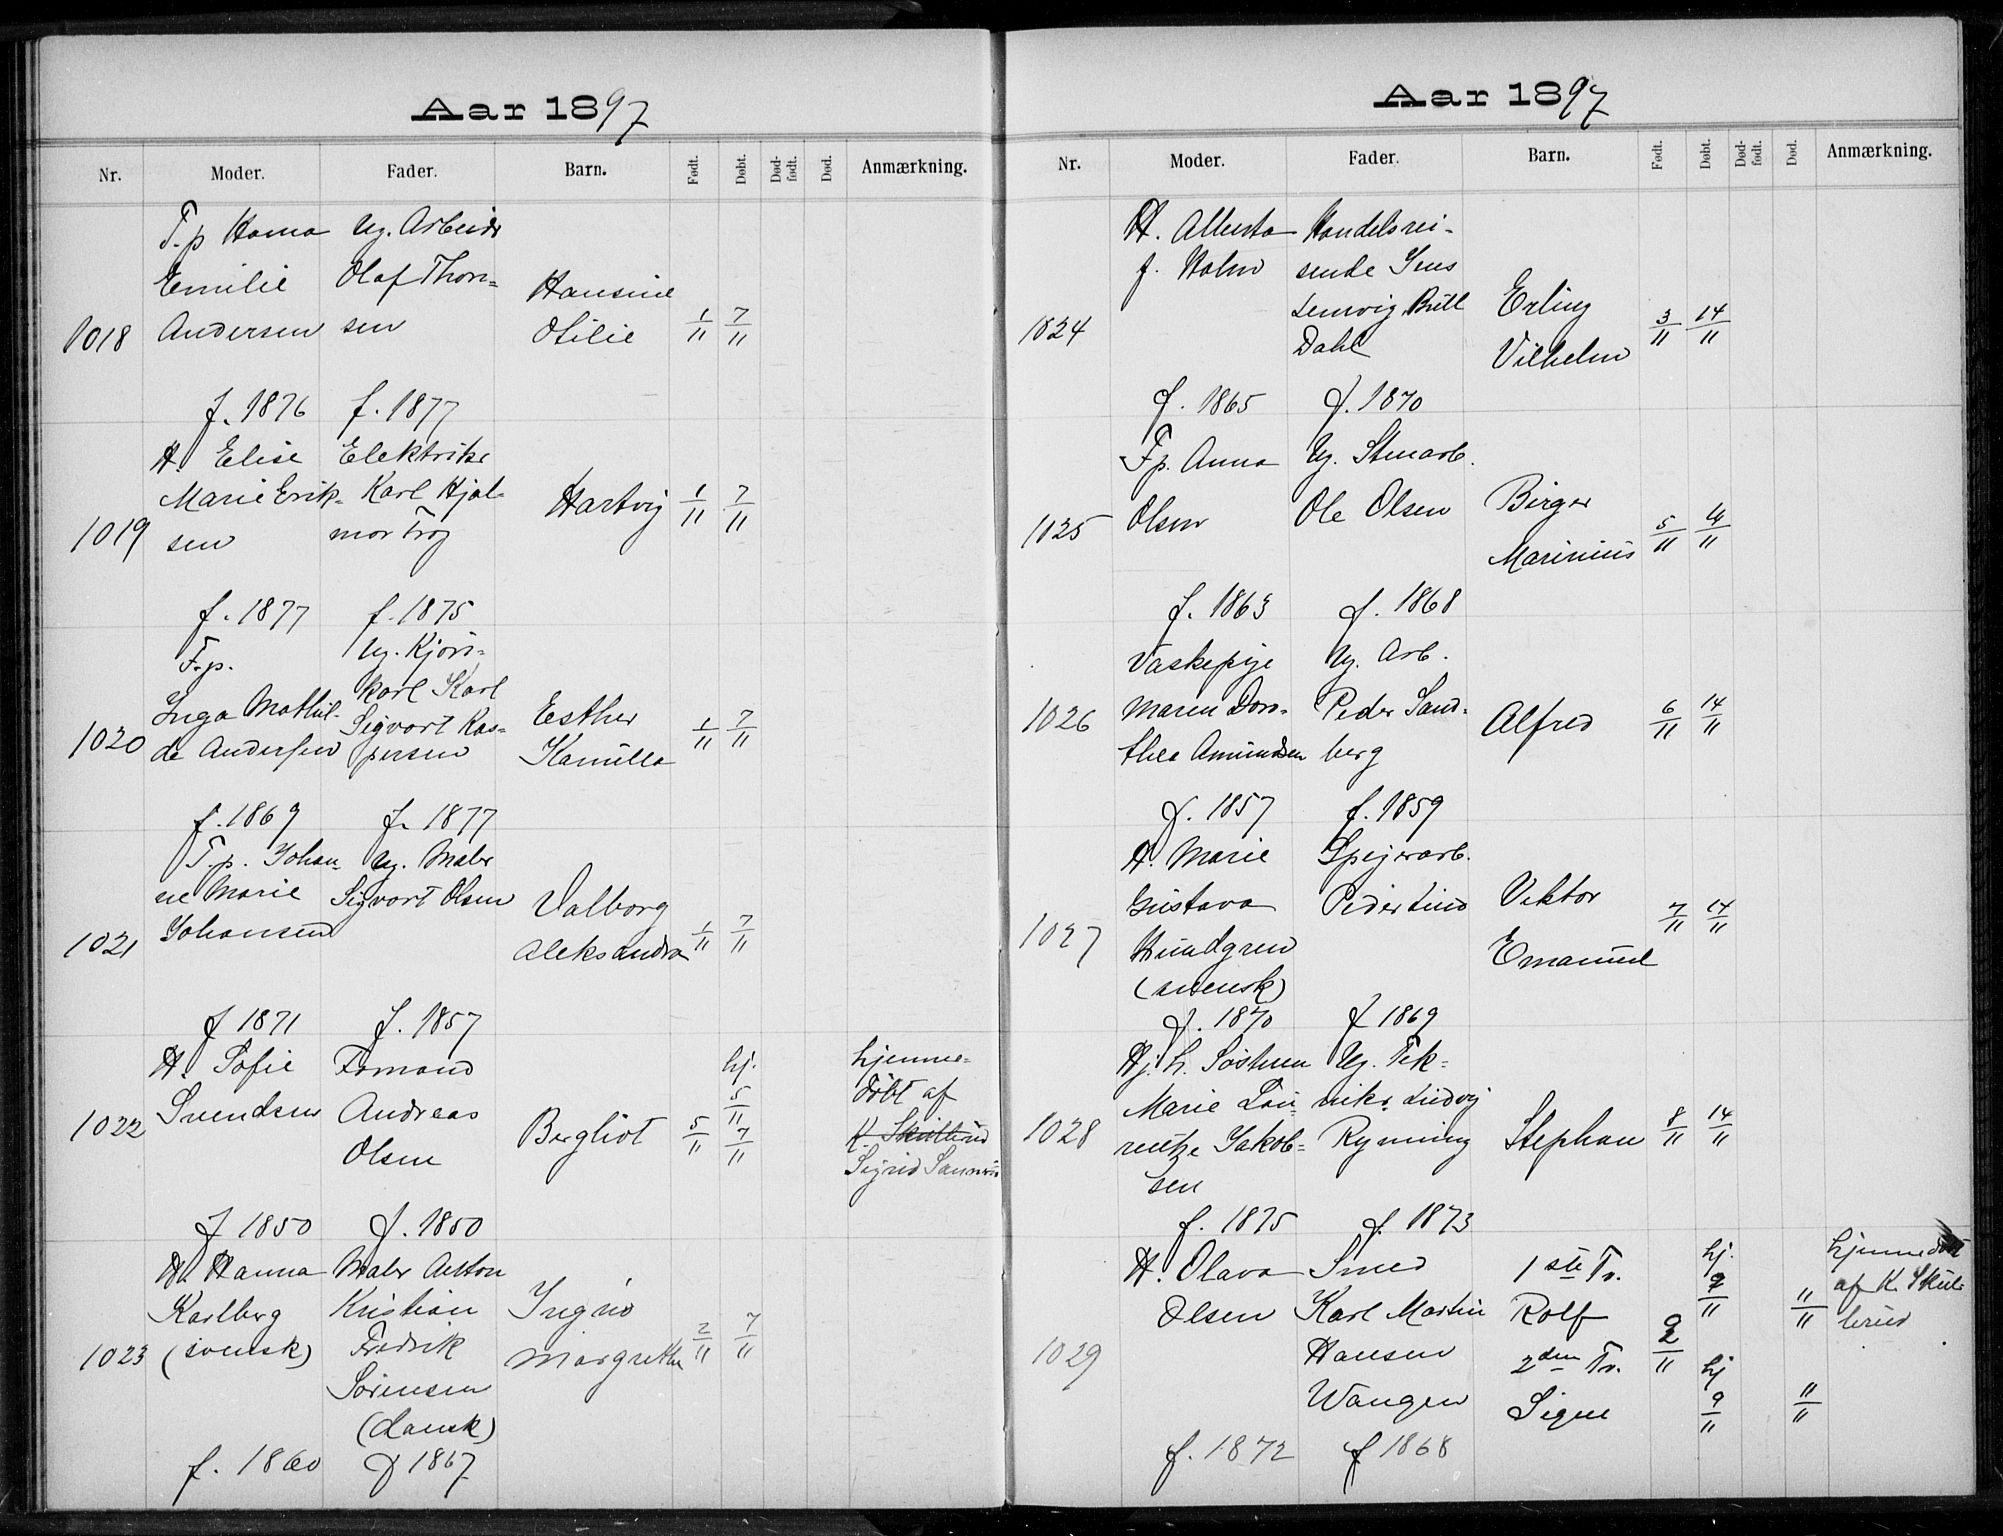 Aar 1897
Nr. Moder. Fader. Barn. Født. Døbt. Død-født. Død. Anmærkning.
1018
T.p Hanna
Emilie
Andersen
f. 1876
Ug. Arbeidr
Olaf Thor-
sen
f. 1877
Hansine
Otilie
1/11 7/11
1019
H. Elise
Marie Erik-
sen
f. 1877
Elektrikr
Karl Hjal-
mar Frog
f. 1875
Hartvig
1/11 7/11
1020
F.p.
Inga Mathil-
de Andersen
f. 1869
Ug. Kjøri-
karl Karl
Sigvart Kas-
persen
f. 1877
Esther
Kamilla
1/11 7/11
1021
T.p. Johan-
ne Marie
Johansen
f 1871
Ug. Maler
Sigvart Olsen
f. 1857
Valborg
Aleksandra
1/11 7/11
1022
H. Sofie
Svendsen
f 1850
Formand
Andreas
Olsen
f. 1850
Bergliot
5/11
hj.
5/11
7/11
hjemme-
døbt af
K. Skullerud
Sigrid
1023
H. Hanna
Karlberg
(svensk)
f. 1860
Maler Anton
Kristian
Fredrik
Sørensen
(dansk)
f 1867
Ingrid
Margrethe
2/11 7/11
Aar 1897
Nr. Moder. Fader. Barn. Født. Døbt. Død-født. Død. Anmærkning.
1024
H. Alberta
f. Holm
f. 1865
Handelsrei-
sende Jens
Lemvig Bull
Dahl
f. 1870
Erling
Vilhelm
3/11 14/11
1025
Fp. Anna
Olsen
f. 1863
Ug. Stenarb.
Ole Olsen
f. 1868
Birger
Marinius
5/11 14/11
1026
Vaskepige
Maren Doro-
thea Amundsen
f. 1857
Ug. Arb.
Peder Sand-
berg
f. 1859
Alfred
6/11 14/11
1027
H. Marie
Gustava
(svensk)
f. 1870
Spigerarb.
Peder Lind
f 1869
Viktor
Emanuel
7/11 14/11
1028
Hj. h. Søstren
Marie Lau-
rentze Jakob-
sen
f. 1875
Ug. Tek-
nikr. Ludvig
Rynning
f. 1873
Stephan
8/11 14/11
1029
H. Olava
Olsen
f. 1872
Smed
Karl Martin
Hansen
Wangen
f 1868
1ste Tv.
Rolf
2den Tv.
Signe
9/11
hj.
9/11
hj
9/11
11/11
11/11
hjemmedøbt
af K. Skul-
lerud